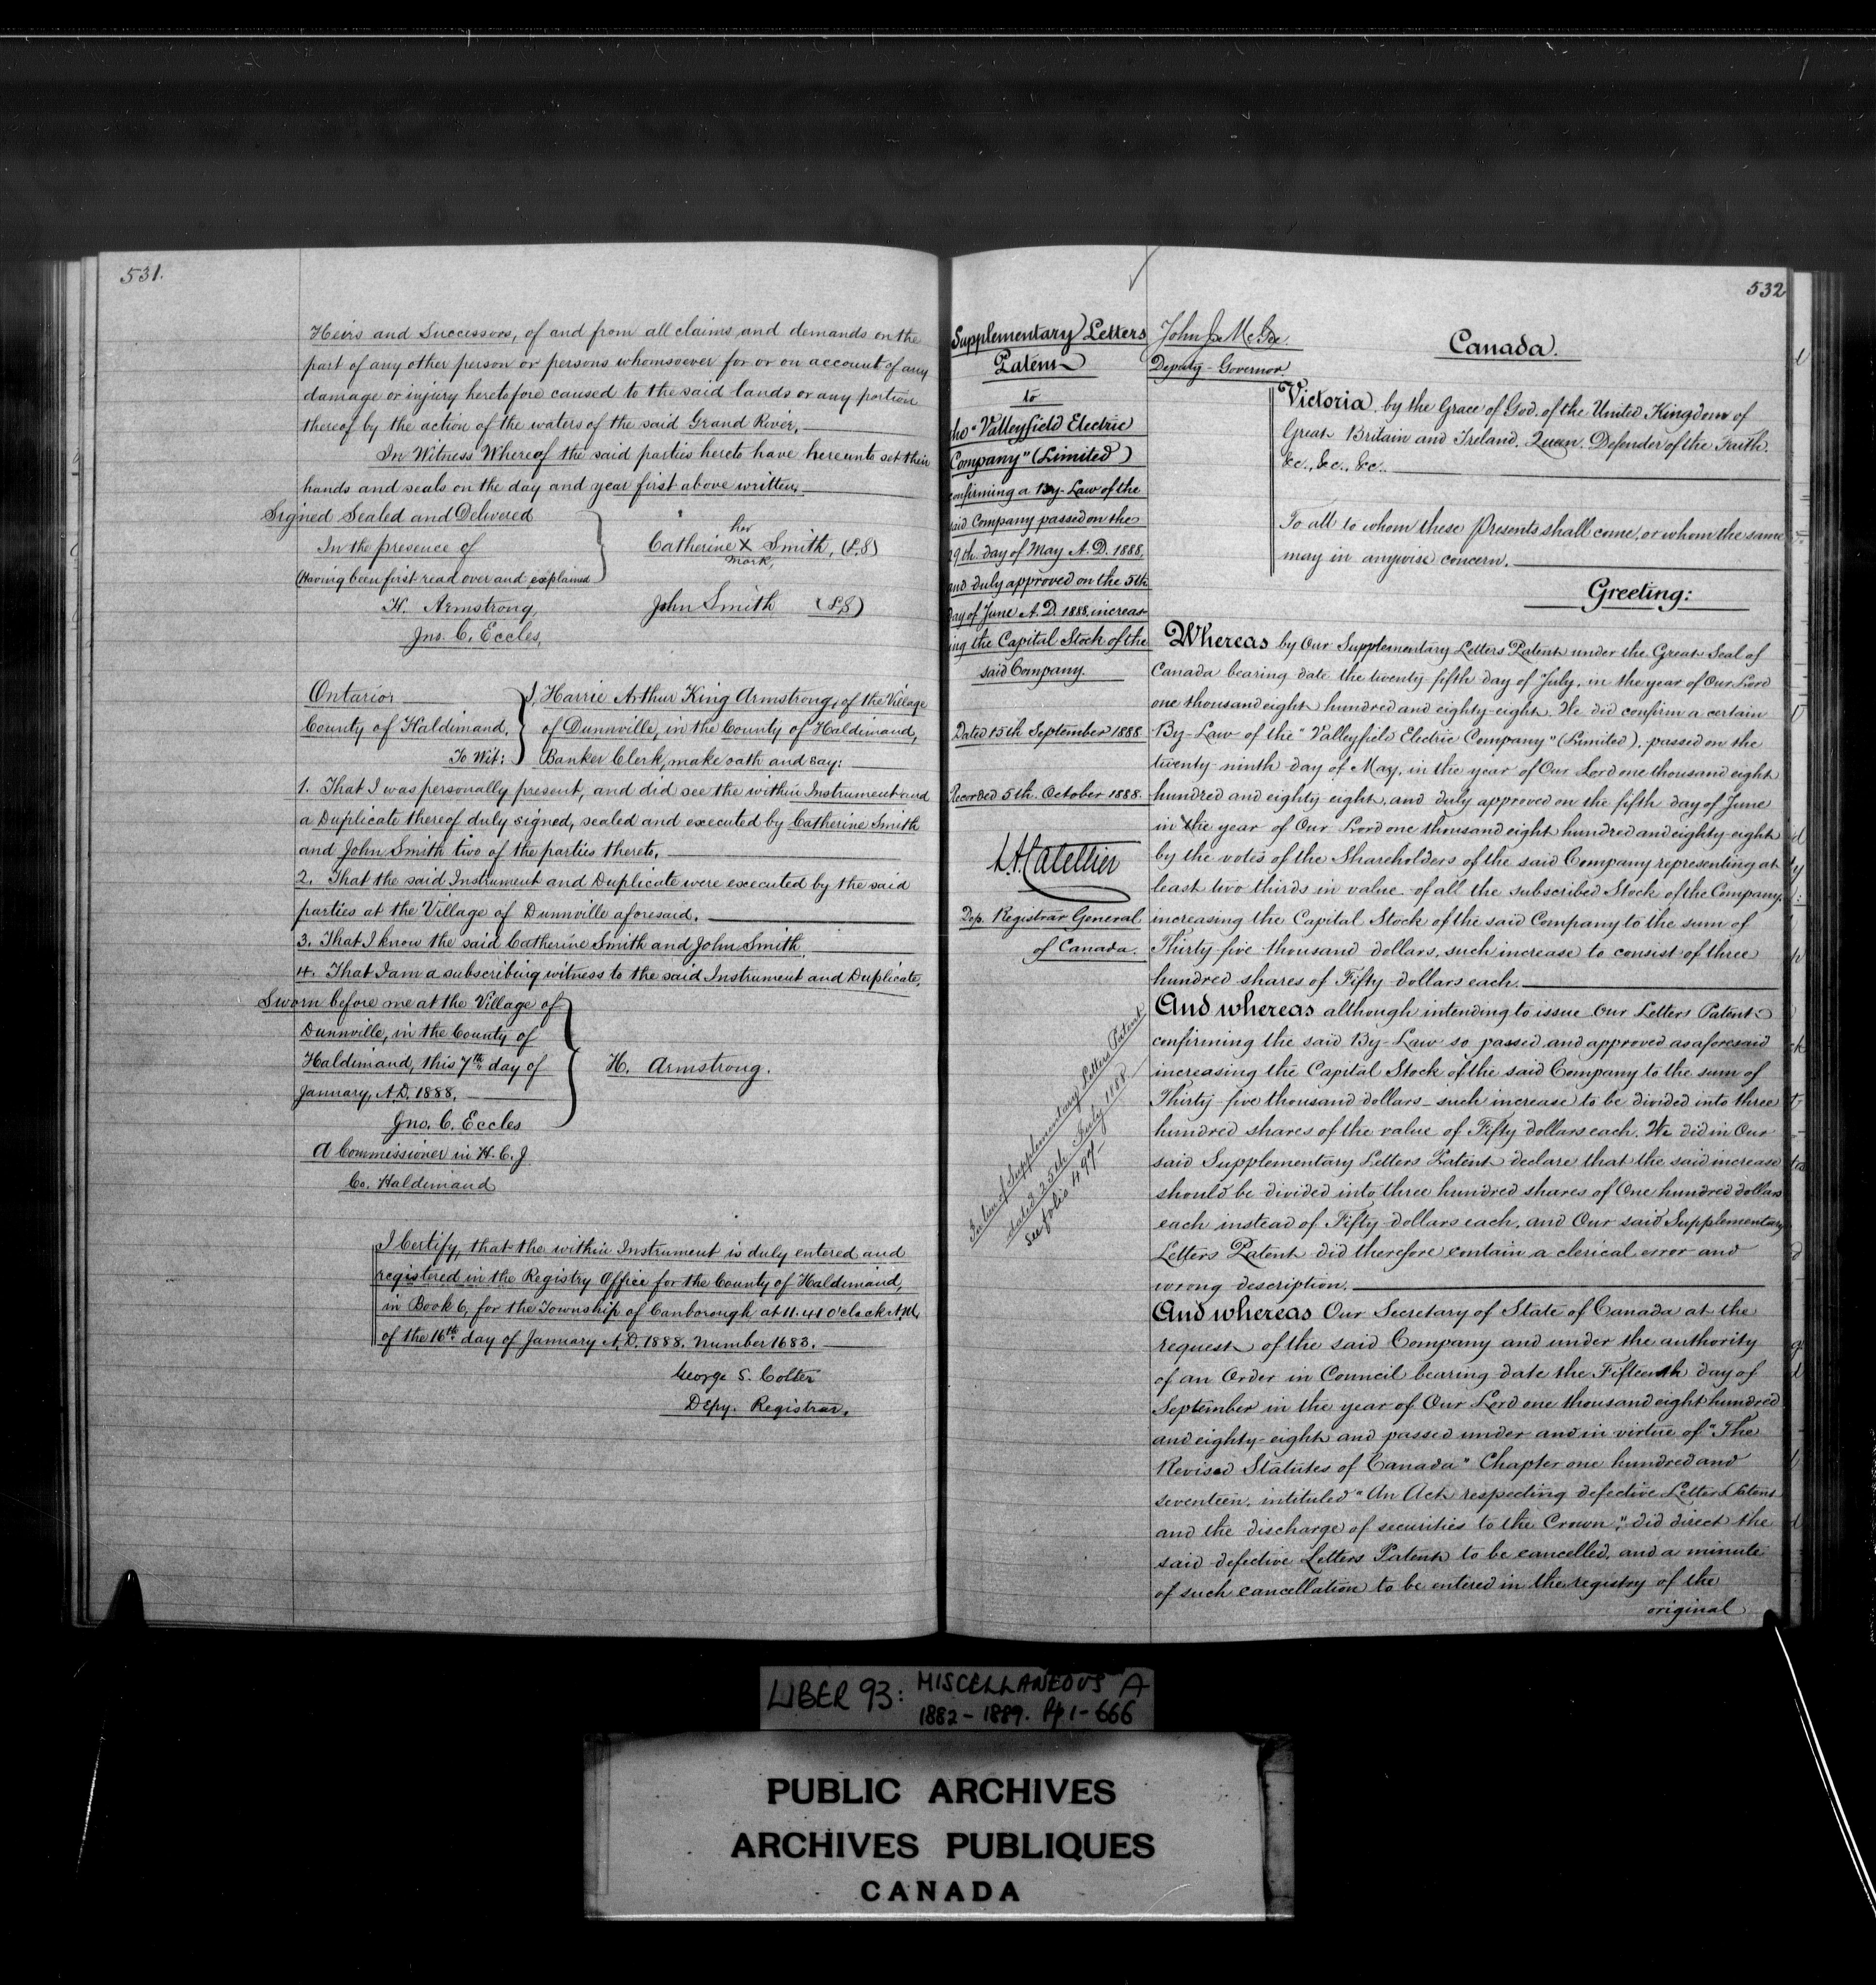 531.
Heirs and Successors, of and from all claims and demands on the
part of any other person or persons whomsoever for or on account of any
damage or injury heretofore caused to the said lands or any portion
thereof by the action of the waters of the said Grand River.
In Witness Whereof the said parties hereto have hereunto set their
hands and seals on the day and year first above written.
Signed Sealed and Delivered
In the presence of
(Having been first read over and explained
H. Armstrong,
Jno. C. Eccles,
her
Catherine X Smith, (L.S)
mark,
John Smith (L.S)
Ontario
County of Haldimand,
To Wit:
I, Harrie Arthur King Armstrong, of the Village
of Dunnville, in the County of Haldimand,
Banker Clerk, make oath and say:
1. That I was personally present, and did see the within Instrument and
a Duplicate thereof duly signed, sealed and executed by Catherine Smith
and John Smith two of the parties thereto.
2. That the said Instrument and Duplicate were executed by the said
parties at the Village of Dunnville aforesaid.
3. That I know the said Catherine Smith and John Smith.
4. That I am a subscribing witness to the said Instrument and Duplicate.
Sworn before me at the Village of
Dunnville, in the County of
Haldimand, this 7th day of
January, A.D. 1888.
H. Armstrong.
Jno. C. Eccles
A Commissioner in H. C. J
Co. Haldimand
I Certify, that the within Instrument is duly entered and
registered in the Registry Office for the County of Haldimand,
in Book 6, for the Township of Canborough at 11.41 O'clock A.M.,
of the 16th day of January A.D. 1888. Number 1683.
George S. Colter
Depy. Registrar.
532
Supplementary Letters
Patent
to
the "Valleyfield Electric
Company" (Limited)
confirming a By-Law of the
said Company passed on the
29th. day of May A.D. 1888,
and duly approved on the 5th
day of June A.D. 1888, increas
ing the Capital Stock of the
said Company.
Dated 15th September 1888
Recorded 5th. October 1888.
L.A. Catellier
Dep. Registrar General
of Canada.
In lieu of Supplementary Letters Patent
dated 25th July 1888
See folio 497
John J. McGee
Deputy-Governor.
Canada.
Victoria, by the Grace of God, of the United Kingdom of
Great Britain and Ireland, Queen, Defender of the Faith.
&c., &c., &c.
To all to whom these Presents shall come, or whom the same
may in anywise concern.
Greeting:
Whereas by Our Supplementary Letters Patent under the Great Seal of
Canada bearing date the twenty-fifth day of July, in the year of Our Lord
one thousand eight hundred and eighty-eight. We did confirm a certain
By-Law of the "Valleyfield Electric Company" (Limited), passed on the
twenty-ninth day of May, in the year of Our Lord one thousand eight
hundred and eighty-eight, and duly approved on the fifth day of June
in the year of Our Lord one thousand eight hundred and eighty-eight
by the votes of the Shareholders of the said Company representing at
least two thirds in value of all the subscribed Stock of the Company,
increasing the Capital Stock of the said Company to the sum of
Thirty-five thousand dollars, such increase to consist of three
hundred shares of Fifty dollars each.
And whereas although intending to issue Our Letters Patent
confirming the said By-Law so passed and approved as aforesaid
increasing the Capital Stock of the said Company to the sum of
Thirty-five thousand dollars - such increase to be divided into three
hundred shares of the value of Fifty dollars each. We did in Our
said Supplementary Letters Patent declare that the said increase
should be divided into three hundred shares of One hundred dollars
each instead of Fifty dollars each, and Our said Supplementary
Letters Patent did therefore contain a clerical error and
wrong description.
And whereas Our Secretary of State of Canada at the
request of the said Company and under the authority
of an Order in Council bearing date the Fifteenth day of
September in the year of Our Lord one thousand eight hundred
and eighty-eight and passed under and in virtue of "The
Revised Statutes of Canada" Chapter one hundred and
seventeen, intituled "An Act respecting defective Letters Patent
and the discharge of securities to the Crown," did direct the
said defective Letters Patent to be cancelled, and a minute
of such cancellation to be entered in the registry of the
original
LIBER 93: MISCELLANEOUS A
1882-1889. Pp. 1-666
PUBLIC ARCHIVES
ARCHIVES PUBLIQUES
CANADA